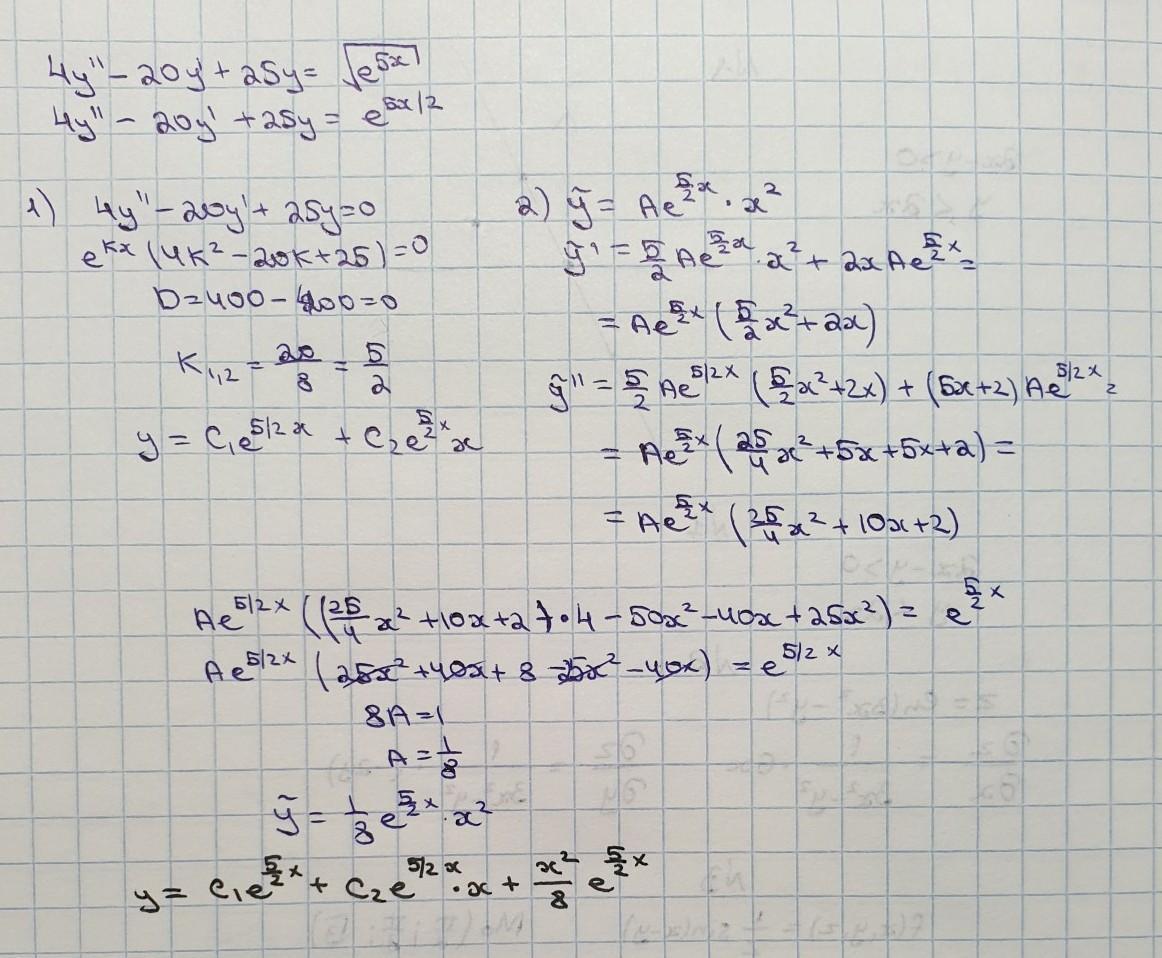 4y'' - 20y' + 25y = √(e^(5x))
4y'' - 20y' + 25y = e^(5x/2)
1) 4y'' - 20y' + 25y = 0
e^(kx) (4k² - 20k + 25) = 0
D = 400 - 400 = 0
K₁,₂ = 20/8 = 5/2
y = C₁e^(5/2 x) + C₂e^(5/2 x) x
2) ỹ = Ae^(5/2 x) · x²
ỹ' = 5/2 Ae^(5/2 x) · x² + 2xAe^(5/2 x) =
= Ae^(5/2 x) (5/2 x² + 2x)
ỹ'' = 5/2 Ae^(5/2 x) (5/2 x² + 2x) + (5x+2) Ae^(5/2 x) =
= Ae^(5/2 x) (25/4 x² + 5x + 5x + 2) =
= Ae^(5/2 x) (25/4 x² + 10x + 2)
Ae^(5/2 x) ((25/4 x² + 10x + 2) · 4 - 50x² - 40x + 25x²) = e^(5/2 x)
Ae^(5/2 x) (25x² + 40x + 8 - 25x² - 40x) = e^(5/2 x)
8A = 1
A = 1/8
ỹ = 1/8 e^(5/2 x) · x²
y = C₁e^(5/2 x) + C₂e^(5/2 x) · x + x²/8 e^(5/2 x)